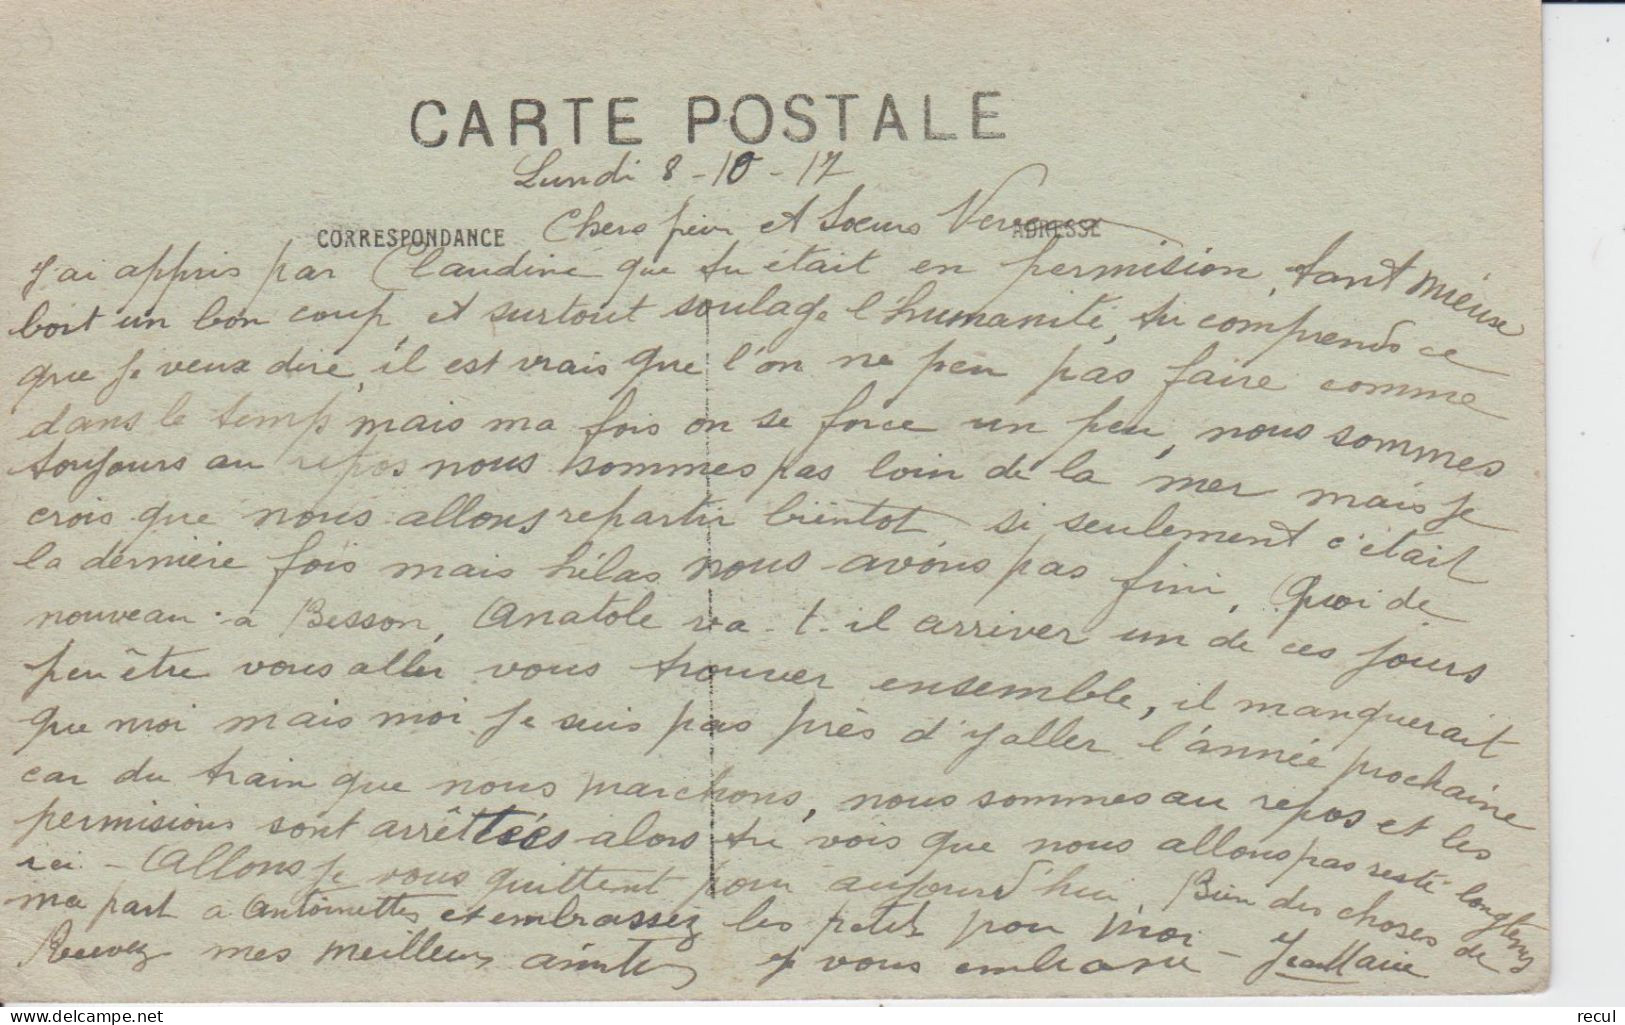 CARTE POSTALE
Lundi 8-10-17
CORRESPONDANCE
ADRESSE
Chers frèr et Soeurs
J'ai appris par Claudine que tu était en permision, tant mieuse
boit un bon coup, et surtout soulage l'humanité, tu comprends ce
que je veux dire, il est vrais que l'on ne peu pas faire comme
dans le temp mais ma fois on se force un peu, nous sommes
toujours au repos nous sommes pas loin de la mer mais je
crois que nous allons repartir bientot si seulement c'était
la dernière fois mais hélas nous avons pas fini. Quoi de
nouveau à Besson, Anatole va-t-il arriver un de ces jours
peu être vous aller vous trouver ensemble, il manquerait
que moi mais moi je suis pas près d'y aller l'année prochaine
car du train que nous marchons, nous sommes au repos et les
permisions sont arrêttées alors tu vois que nous allons pas resté longtemps
ici - Allons je vous quittent pour aujourd'hui. Bien des choses de
ma part a Antoinettes et embrassez les petits pour moi
Recevez mes meilleurs amitiés je vous embrasse - Jean Marie
delcampe.net
recul